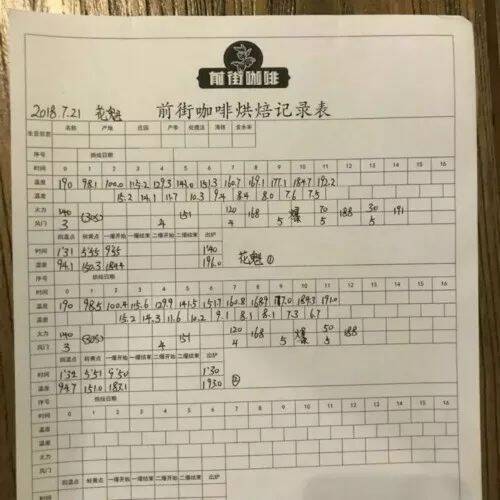 前街咖啡
2018.7.21 花魁 前街咖啡烘焙记录表
生豆信息 名称 产地 庄园 产季 处理法 海拔 含水率
序号 烘焙日期
时间 0 1 2 3 4 5 6 7 8 9 10 11 12 13 14 15 16
温度 190 98.1 100.0 115.2 129.3 141.0 151.3 160.7 169.1 177.1 184.7 192.2
温度 15.2 14.1 11.7 10.3 9.4 8.4 8.0 7.6 7.5
火力 140 (30S) 151 120 168 爆 70 188 30 191
风门 3 4 4 5 5 5
回温点 转黄点 一爆开始 一爆结束 二爆开始 二爆结束 出炉
时间 1'31 5'55 9'55 1'40
温度 94.1 150.3 184.4 196.0 花魁①
序号 烘焙日期
时间 0 1 2 3 4 5 6 7 8 9 10 11 12 13 14 15 16
温度 190 98.5 100.4 115.6 129.9 141.5 151.7 160.8 168.9 177.0 184.3 191.0
温度 15.2 14.3 11.6 10.2 9.1 8.1 8.1 7.3 6.7
火力 140 (30S) 151 120 168 爆 50 188
风门 3 4 4 5 5
回温点 转黄点 一爆开始 一爆结束 二爆开始 二爆结束 出炉
时间 1'32 5'51 9'50 1'30
温度 94.7 151.0 183.1 193.0 ②
序号 烘焙日期
时间 0 1 2 3 4 5 6 7 8 9 10 11 12 13 14 15 16
温度
温度
火力
风门
回温点 转黄点 一爆开始 一爆结束 二爆开始 二爆结束 出炉
时间
温度
序号 烘焙日期
时间 0 1 2 3 4 5 6 7 8 9